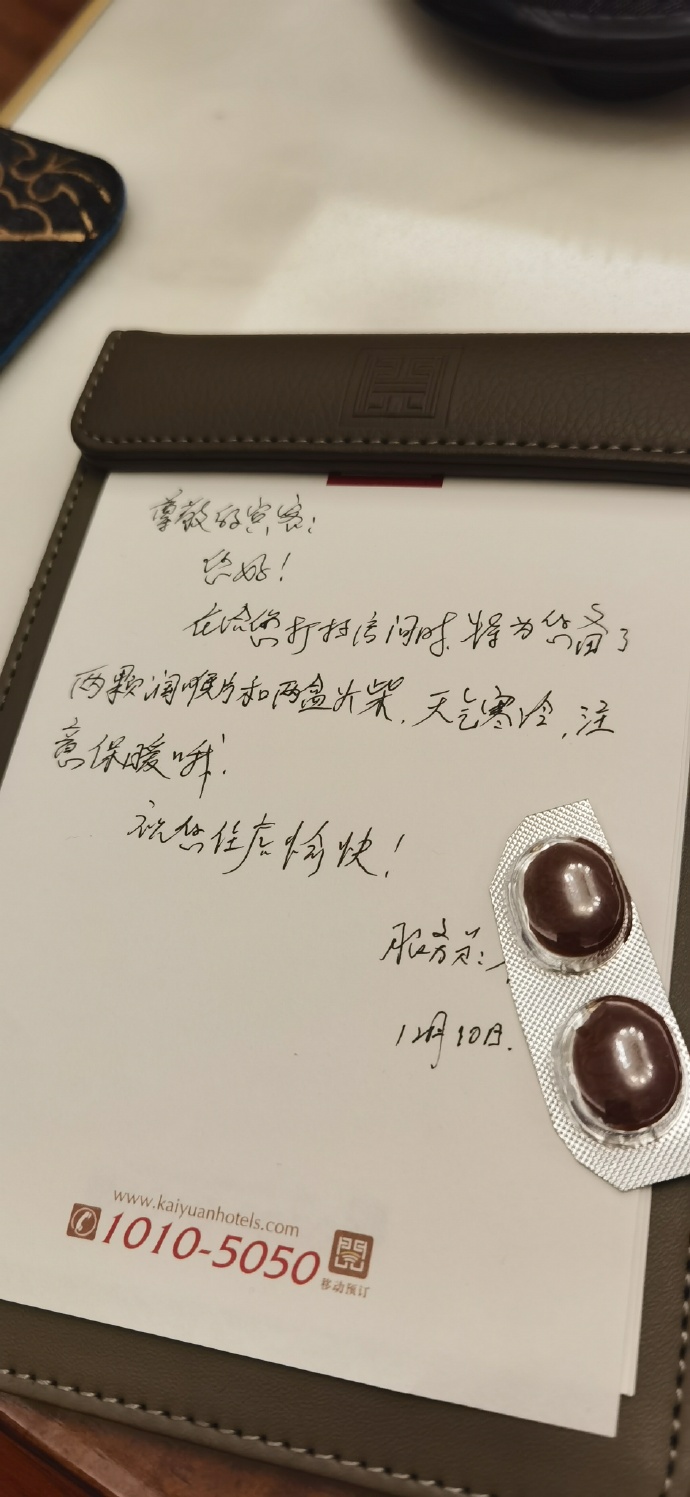 尊敬的宾客：
您好！
在给您打扫房间时，特为您备了
两颗润喉片和两盒火柴，天气寒冷，注
意保暖哦！
祝您住店愉快！
服务员：
12月10日.
www.kaiyuanhotels.com
1010-5050
移动预订